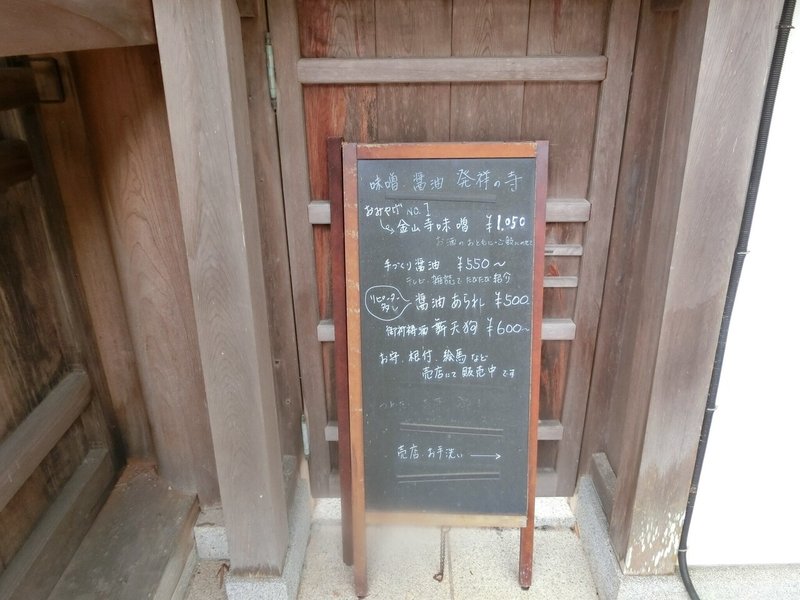 味噌、醤油 発祥の寺
おみやげ NO.1
金山寺味噌 ¥1,050
お酒のおともに、ご飯にのせて
手づくり醤油 ¥550〜
テレビ、雑誌でたびたび紹介
リピーター
多し
醤油あられ ¥500
御祈祷酒 舞天狗 ¥600〜
お守、根付、絵馬など
売店にて販売中です
売店、お手洗い →